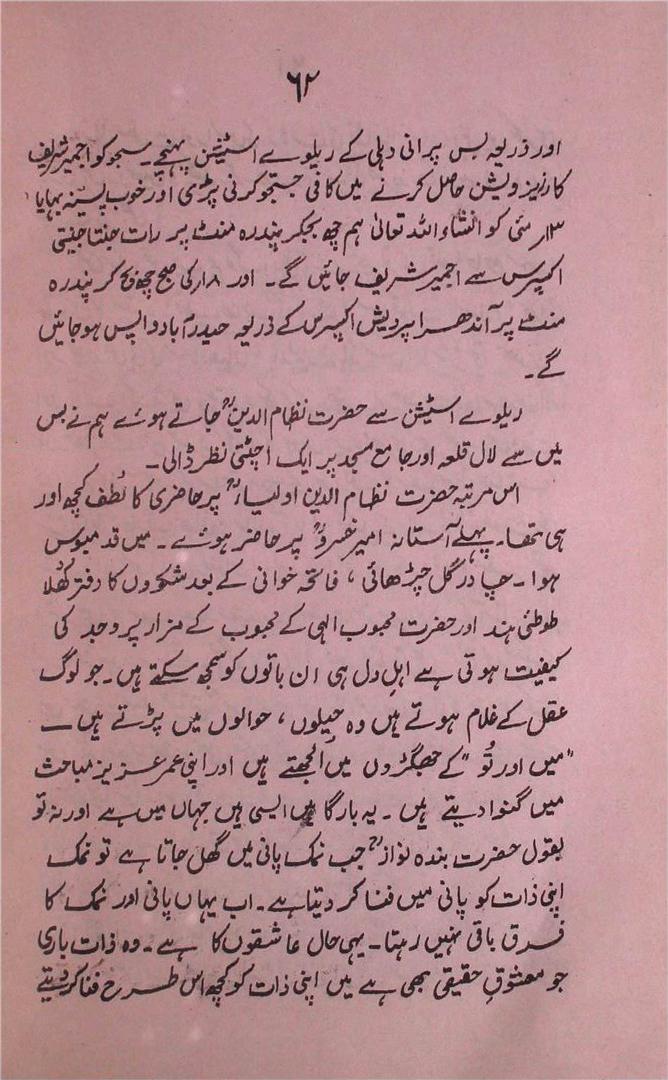 ۶۲
اور ذریعہ بس پرانی دہلی کے ریلوے اسٹیشن پہنچے۔ سبحو کو اجمیر شریف
کا رزیز ویشن حاصل کرنے میں کافی جستجو کرنی پڑی اور خوب پسینہ بہایا
۱۳ر مئی کو انشاء اللہ تعالیٰ ہم چھ بجکر پندرہ منٹ پر رات جنتا جینتی
اکسپرس سے اجمیر شریف جائیں گے۔ اور ۱۸ر کی صبح چھ بج کر پندرہ
منٹ پر آندھرا پردیش اکسپرس کے ذریعہ حیدرآباد واپس ہو جائیں
گے۔
ریلوے اسٹیشن سے حضرت نظام الدینؒ جاتے ہوئے ہم نے بس
میں سے لال قلعہ اور جامع مسجد پر ایک اچٹتی نظر ڈالی۔
اس مرتبہ حضرت نظام الدین اولیاءؒ پر حاضری کا لُطف کچھ اور
ہی تھا۔ پہلے آستانہ امیر خسروؒ پر حاضر ہوئے۔ میں قدمبوس
ہوا۔ چادر گل چڑھائی، فاتحہ خوانی کے بعد شکووں کا دفتر کھُلا
طوطئ ہند اور حضرت محبوب الٰہی کے محبوب کے مزار پر وجد کی
کیفیت ہوتی ہے اہلِ دل ہی ان باتوں کو سمجھ سکتے ہیں۔ جو لوگ
عقل کے غلام ہوتے ہیں وہ حیلوں، حوالوں میں پڑتے ہیں —
"میں اور تُو" کے جھگڑوں میں اُلجھتے ہیں اور اپنی عمر عزیز مباحث
میں گنوا دیتے ہیں۔ یہ بارگاہیں ایسی ہیں جہاں میں ہے اور نہ تو
بقول حضرت بندہ نوازؒ جب نمک پانی میں گھل جاتا ہے تو نمک
اپنی ذات کو پانی میں فنا کر دیتا ہے۔ اب یہاں پانی اور نمک کا
فرق باقی نہیں رہتا۔ یہی حال عاشقوں کا ہے۔ وہ ذات باری
جو معشوقِ حقیقی بھی ہے میں اپنی ذات کو کچھ اس طرح فنا کر دیتے